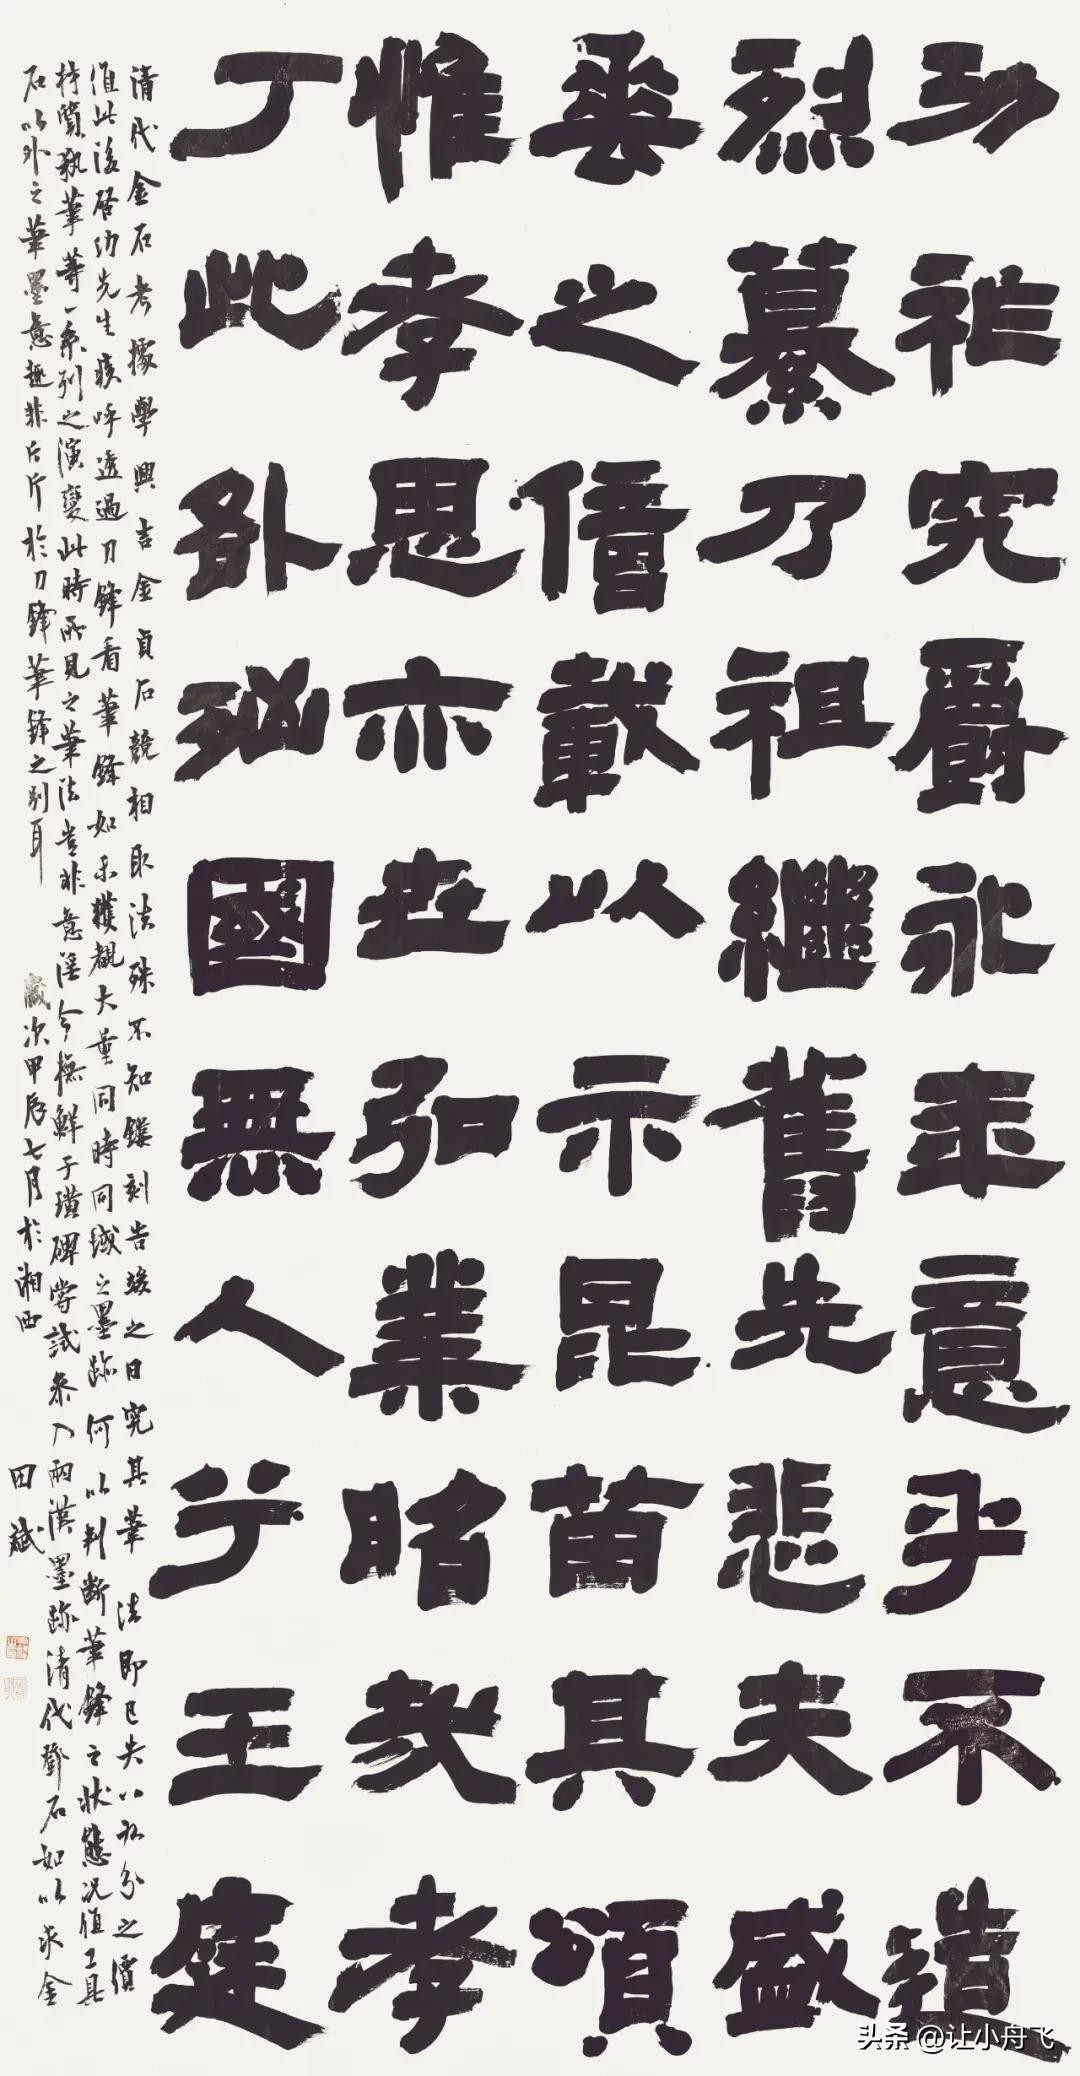 功祚究爵永年意乎不造
烈慕乃祖繼舊先悲夫盛
垂之僭載以示昆苗其頌
惟孝思亦世弘業昭哉孝
丁此外凶國無人兮王庭
清代金石考據學興吉金貞石競相取法殊不知鐫刻告竣之日究其筆法即已失八九分之價
值此後啓功先生疾呼透過刀鋒看筆鋒如未獲觀大量同時同域之墨跡何以判斷筆鋒之狀態況值工具
材質執筆等一系列之演變此時所見之筆法豈非意淫今撫鮮于璜碑嘗試参入兩漢墨跡清代鄧石如以求金
石以外之筆墨意趣非斤斤於刀鋒筆鋒之別耳 歲次甲辰七月於湘西 田斌
头条 @让小舟飞